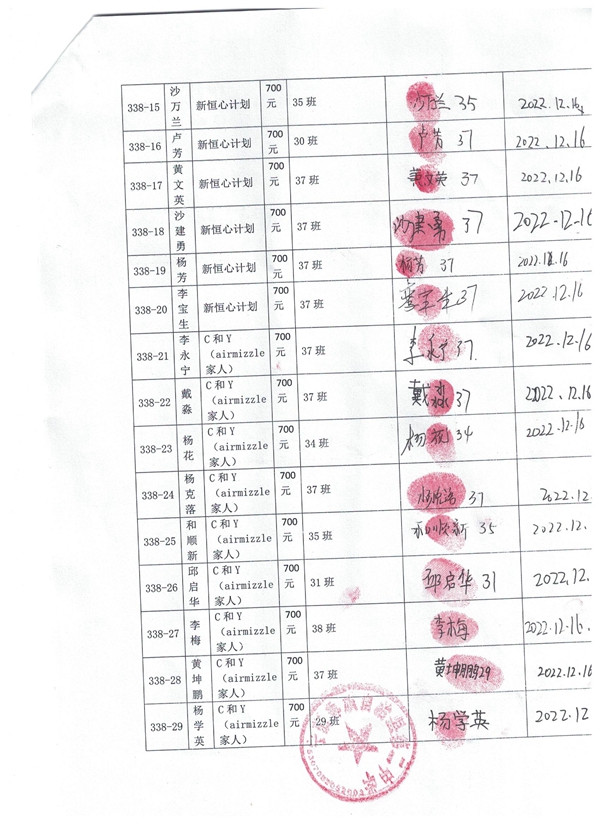 338-15 沙万兰 新恒心计划 700元 35班 沙万兰 35 2022.12.16
338-16 卢芳 新恒心计划 700元 30班 卢芳 37 2022.12.16
338-17 黄文英 新恒心计划 700元 37班 黄文英 37 2022.12.16
338-18 沙建勇 新恒心计划 700元 37班 沙建勇 37 2022-12-16
338-19 杨芳 新恒心计划 700元 37班 杨芳 37 2022.12.16
338-20 李宝生 新恒心计划 700元 37班 李宝生 37 2022.12.16
338-21 李永宁 C和Y（airmizzle家人） 700元 37班 李永宁 37. 2022.12.16
338-22 戴淼 C和Y（airmizzle家人） 700元 37班 戴淼 37 2022.12.16
338-23 杨花 C和Y（airmizzle家人） 700元 34班 杨花 34 2022.12.16
338-24 杨克落 C和Y（airmizzle家人） 700元 37班 杨克洛 37 2022.12.
338-25 和顺新 C和Y（airmizzle家人） 700元 35班 和顺新 35 2022.12.
338-26 邱启华 C和Y（airmizzle家人） 700元 31班 邱启华 31 2022.12.
338-27 李梅 C和Y（airmizzle家人） 700元 38班 李梅 2022.12.16.
338-28 黄坤鹏 C和Y（airmizzle家人） 700元 37班 黄坤鹏 29 2022.12.16
338-29 杨学英 C和Y（airmizzle家人） 700元 29班 杨学英 2022.12